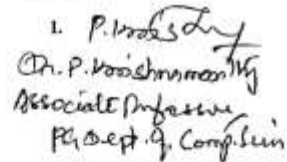 1.
Dr. P. Krishnamoorthy
Associate Professor
PG Dept. of Comp. Scien